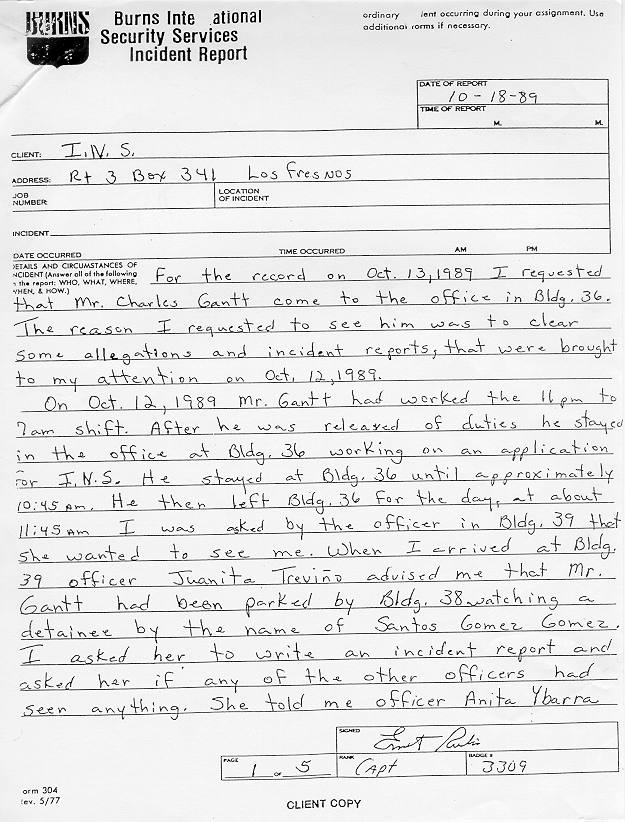 BURNS
Burns Inte ational
Security Services
Incident Report
ordinary ent occurring during your assignment. Use
additional orms if necessary.
DATE OF REPORT
10-18-89
TIME OF REPORT
M. M.
CLIENT: I.N.S.
ADDRESS: Rt 3 Box 341 Los Fresnos
JOB NUMBER
LOCATION OF INCIDENT
INCIDENT
DATE OCCURRED TIME OCCURRED AM PM
DETAILS AND CIRCUMSTANCES OF
NCIDENT (Answer all of the following
n the report: WHO, WHAT, WHERE,
WHEN, & HOW.)
For the record on Oct. 13, 1989 I requested
that Mr. Charles Gantt come to the office in Bldg. 36.
The reason I requested to see him was to clear
some allegations and incident reports, that were brought
to my attention on Oct. 12, 1989.
On Oct. 12, 1989 Mr. Gantt had worked the 11pm to
7am shift. After he was released of duties he stayed
in the office at Bldg. 36 working on an application
for I.N.S. He stayed at Bldg. 36 until approximately
10:45 am. He then left Bldg. 36 for the day, at about
11:45 am I was asked by the officer in Bldg. 39 that
she wanted to see me. When I arrived at Bldg.
39 officer Juanita Treviño advised me that Mr.
Gantt had been parked by Bldg. 38 watching a
detainee by the name of Santos Gomez Gomez.
I asked her to write an incident report and
asked her if any of the other officers had
seen anything. She told me officer Anita Ybarra
SIGNED
PAGE 1 OF 5
RANK Capt
BADGE # 3309
orm 304
ev. 5/77
CLIENT COPY